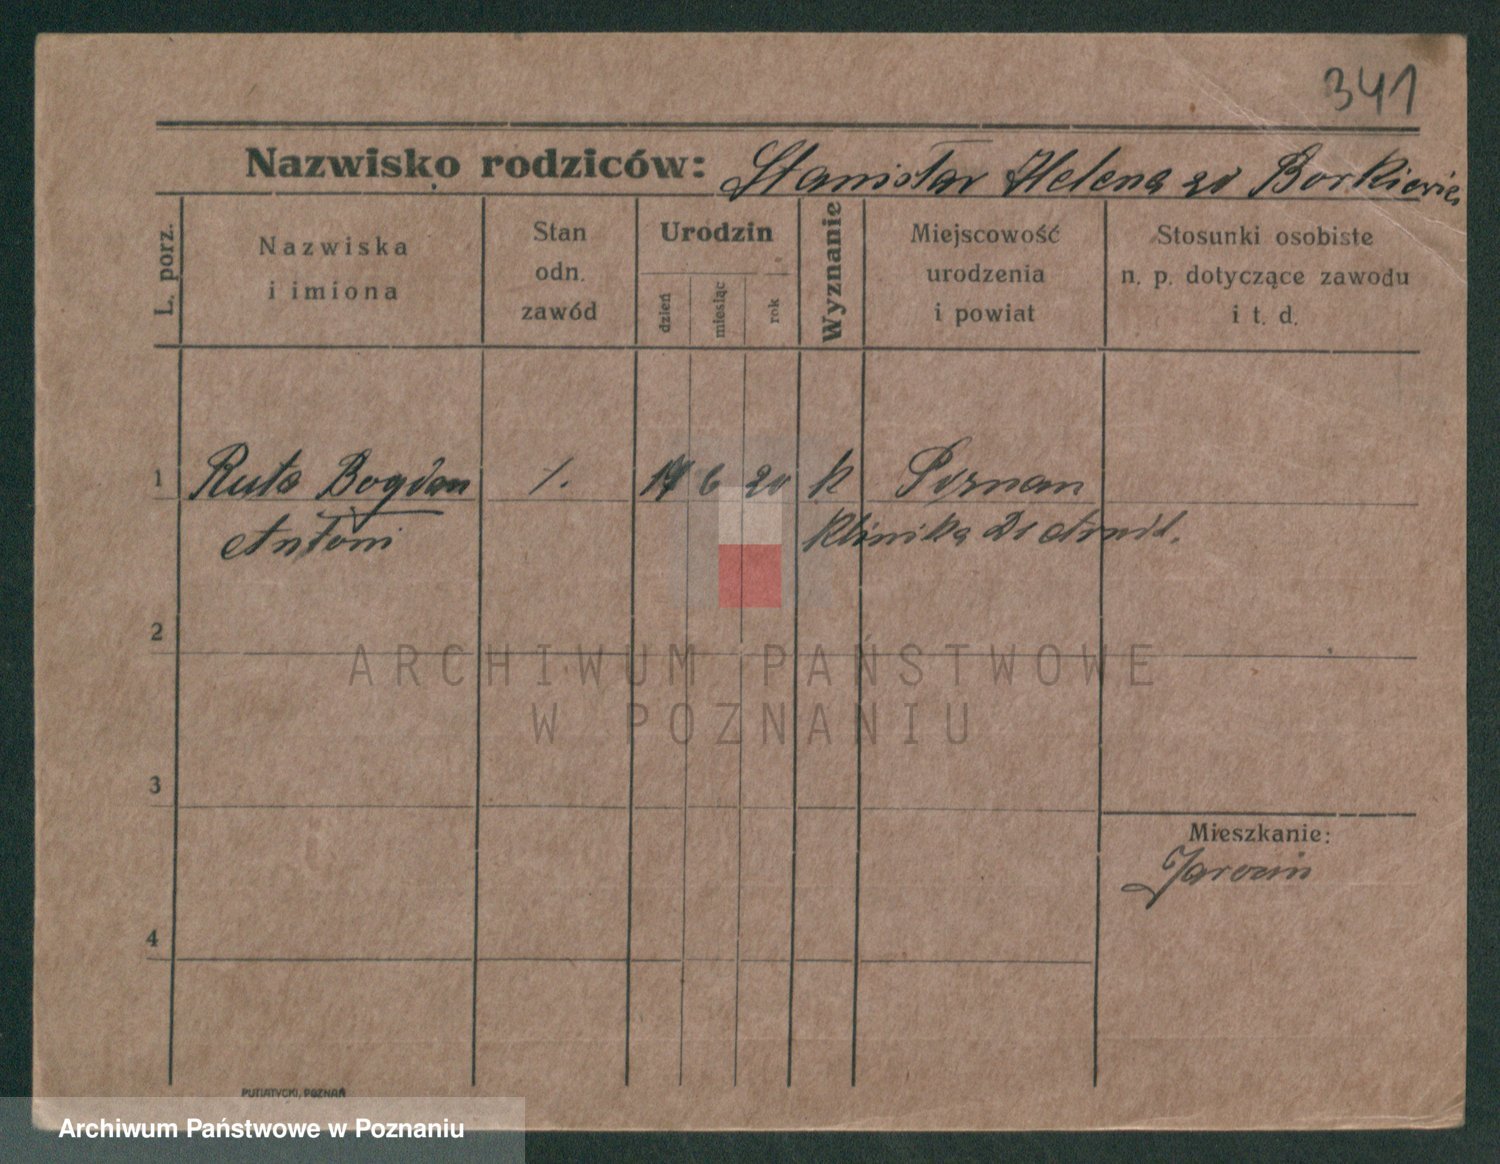 341
Nazwisko rodziców: Stanisław Helena zd Borkiewicz
L. porz.
Nazwiska
i imiona
Stan
odn.
zawód
Urodzin
dzień
miesiąc
rok
Wyznanie
Miejscowość
urodzenia
i powiat
Stosunki osobiste
n. p. dotyczące zawodu
i t. d.
1 Ruta Bogdan 6 20 k Poznan
Antoni Klinika
2
ARCHIWUM PAŃSTWOWE
W POZNANIU
3
Mieszkanie:
Jarocin
4
PUTIATYCKI, POZNAŃ
Archiwum Państwowe w Poznaniu